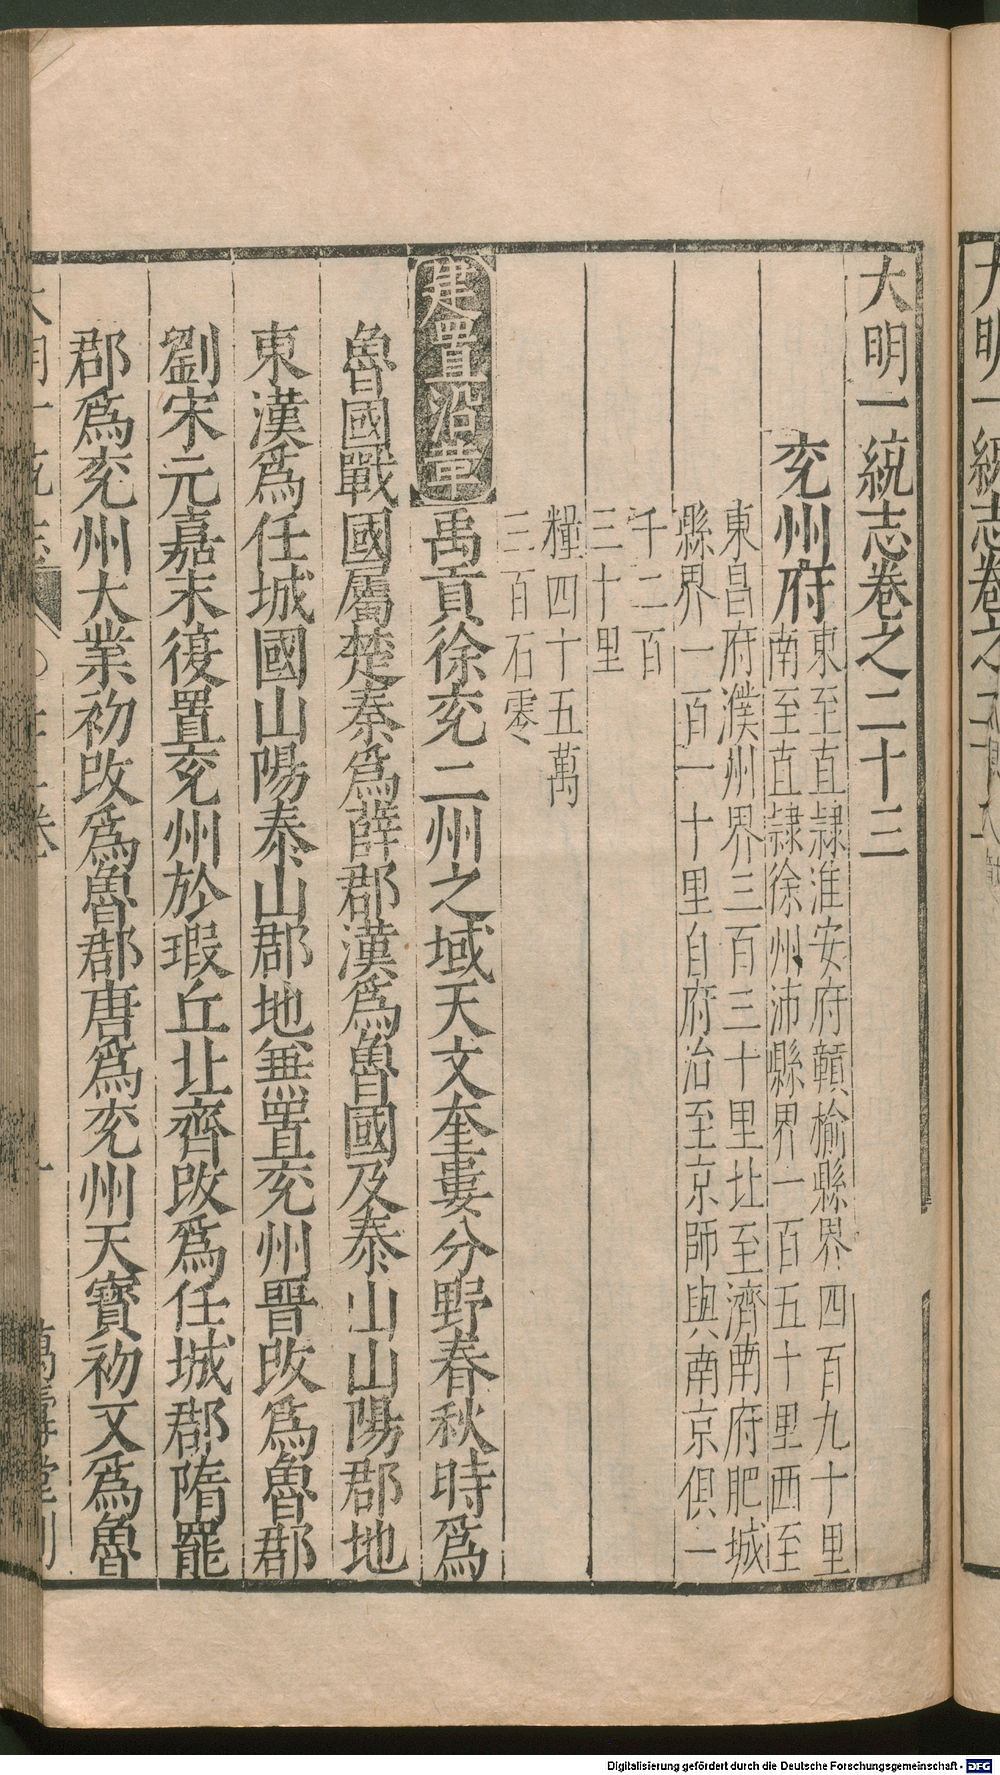 大明一統志卷之二十三
兖州府
東至直隸淮安府贑榆縣界四百九十里
南至直隸徐州沛縣界一百五十里西至
東昌府濮州界三百三十里北至濟南府肥城
縣界一百一十里自府治至京師與南京俱一
千二百
三十里
糧四十五萬
三百石零
建置沿革
禹貢徐兖二州之域天文奎婁分野春秋時爲
魯國戰國屬楚秦爲薛郡漢爲魯國及泰山山陽郡地
東漢爲任城國山陽泰山郡地無置兖州晉改爲魯郡
劉宋元嘉末復置兖州於瑕丘北齊改爲任城郡隋罷
郡爲兖州大業初改爲魯郡唐爲兖州天寳初又爲魯
萬壽堂刋
Digitalisierung gefördert durch die Deutsche Forschungsgemeinschaft - DFG